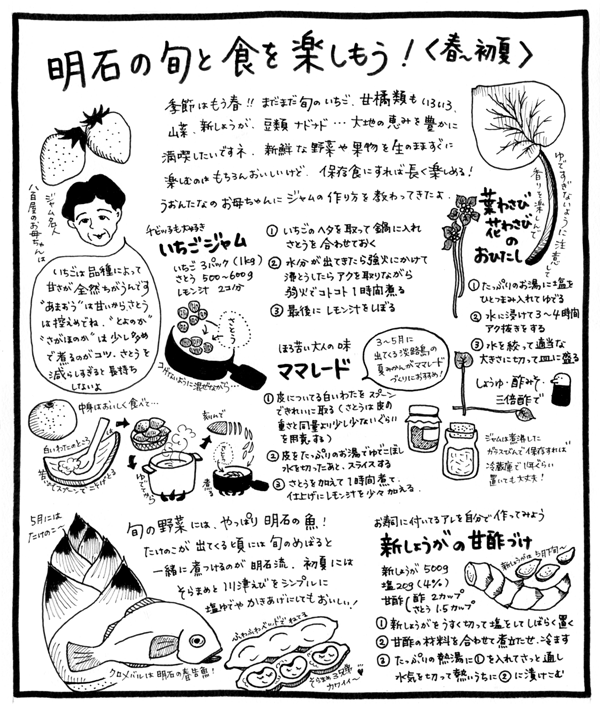 明石の旬と食を楽しもう！〈春～初夏〉
季節はもう春!! まだまだ旬のいちご、甘橘類もいろいろ、
山菜、新しょうが、豆類ナドナド…大地の恵みを豊かに
満喫したいですネ。新鮮な野菜や果物を生のままずぐに
楽しむのはもちろんおいしいけど、保存食にすれば長く楽しめる！
うおんたなのお母ちゃんにジャムの作り方を教わってきたよ。
八百屋のお母ちゃんは
ジャム名人
いちごは品種によって
甘さが全然ちがうんです
"あまおう"は甘いから、さとう
は控えめでね、"とよのか"
"さがほのか"は少し多め
で煮るのがコツ。さとうを
減らしすぎると長持ち
しないよ
チビッ子も大好き
いちごジャム
いちご3パック(1kg)
さとう 500~600g
レモン汁 2コ分
① いちごのヘタを取って鍋に入れ
さとうを合わせておく
② 水分が出てきたら強火にかけて
沸とうしたらアクを取りながら
弱火でコトコト1時間煮る
③ 最後にレモン汁をしぼる
さとう
コゲないように混ぜながら…
ゆですぎないように注意して
香りを楽しんで
葉わさび
花わさび
のおひたし
① たっぷりのお湯に塩を
ひとつまみ入れてゆでる
② 水に浸けて3~4時間
アク抜きをする
③ 水を絞って適当な
大きさに切って皿に盛る
しょうゆ・酢みそ・
三倍酢で
ほろ苦い大人の味
ママレード
3~5月に
出てくる淡路島の
夏みかんがママレード
づくりにおすすめ！
① 皮についてる白いわたをスプーン
できれいに取る(さとうは皮の
重さと同量より少し少ないぐらい
を用意する)
② 皮をたっぷりのお湯でゆでこぼし
水を切ったあと、スライスする
③ さとうを加えて1時間煮て、
仕上げにレモン汁を少々加える。
中身はおいしく食べて…
白いわたのところ
スプーンでこそげとる
ゆでこぼす
刻んで
煮る
ジャムは煮沸した
ガラスびんで保存すれば
冷蔵庫で1年ぐらい
置いても大丈夫！
5月には
たけのこ～
旬の野菜には、やっぱり明石の魚！
たけのこが出てくる頃には旬のめばると
一緒に煮つけるのが明石流。初夏には
そらまめと川津えびをシンプルに
塩ゆでやかきあげにしてもおいしい！
クロメバルは明石の春告魚！
ふわふわベッドでねてる
そらまめ三兄弟
カワイイ～
お寿司に付いてるアレを自分で作ってみよう
新しょうがの甘酢づけ
新しょうが 500g
塩 20g(4%)
甘酢(酢 2カップ
さとう 1.5カップ
新しょうがは5月下旬～
① 新しょうがをうすく切って塩をしてしばらく置く
② 甘酢の材料を合わせて煮立たせ、冷ます
③ たっぷりの熱湯に①を入れてさっと通し
水気を切って熱いうちに②に漬けこむ